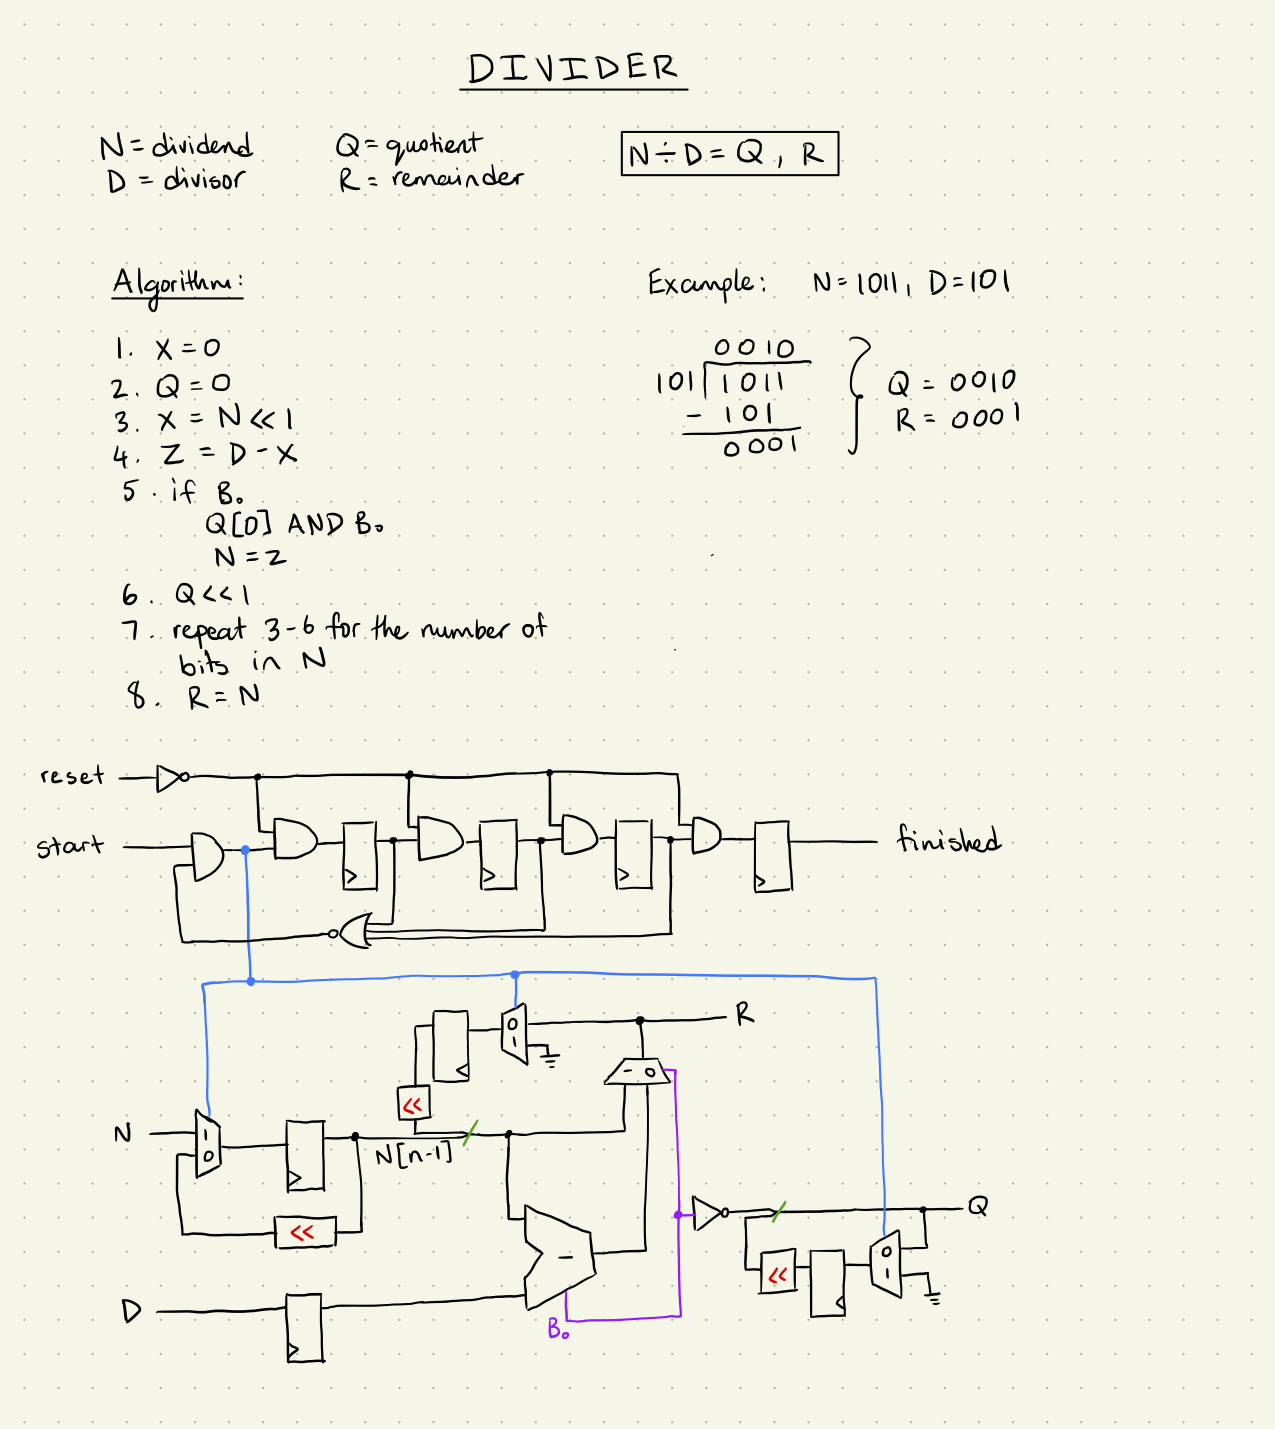 DIVIDER
N = dividend
D = divisor
Q = quotient
R = remainder
N ÷ D = Q, R
Algorithm:
1. X = 0
2. Q = 0
3. X = N << 1
4. Z = D - X
5. if B₀
Q[0] AND B₀
N = z
6. Q << 1
7. repeat 3-6 for the number of
bits in N
8. R = N
Example: N = 1011, D = 101
0010
101 1011
- 101
0001
Q = 0010
R = 0001
reset
start
finished
0
1
R
- 0
<<
N
1
0
N[n-1]
<<
-
Q
0
1
<<
D
B₀